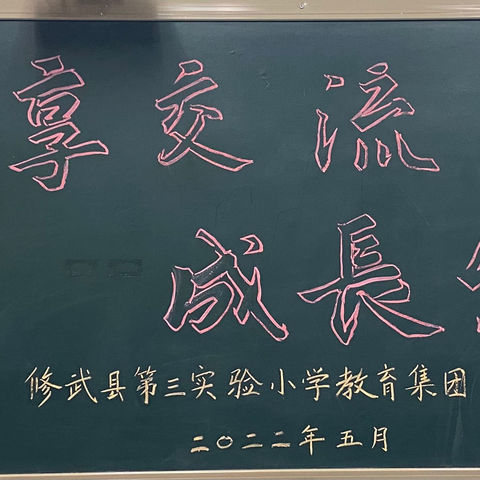 享交流
成長
修武县第三实验小学教育集团
二〇二二年五月